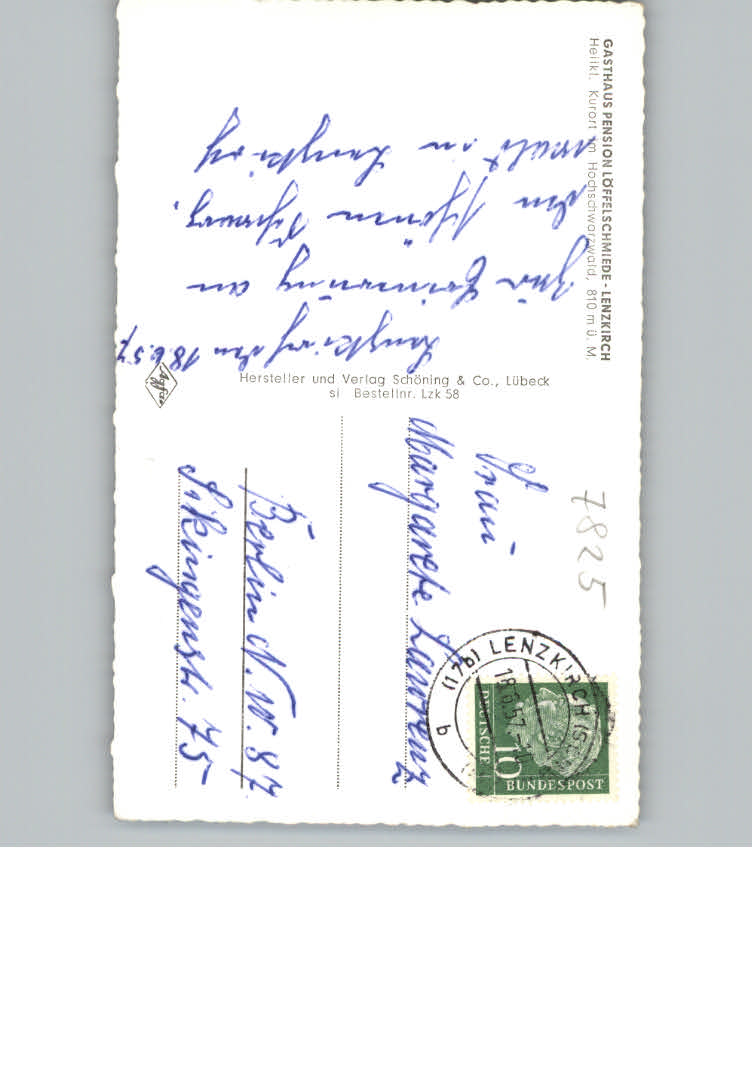 GASTHAUS PENSION LÖFFELSCHMIEDE - LENZKIRCH
Heilkl. Kurort im Hochschwarzwald, 810 m ü. M.
Lenzkirch den 18.6.57
Zur Erinnerung an
den schönen Schwarz-
wald in Lenzkirch
Agfa
Hersteller und Verlag Schöning & Co., Lübeck
si Bestellnr. Lzk 58
7825
(17b) LENZKIRCH
18.6.57
b
DEUTSCHE
10
BUNDESPOST
Frau
Margarete Lawrenz
Berlin N.W. 87
Sikingenstr. 75